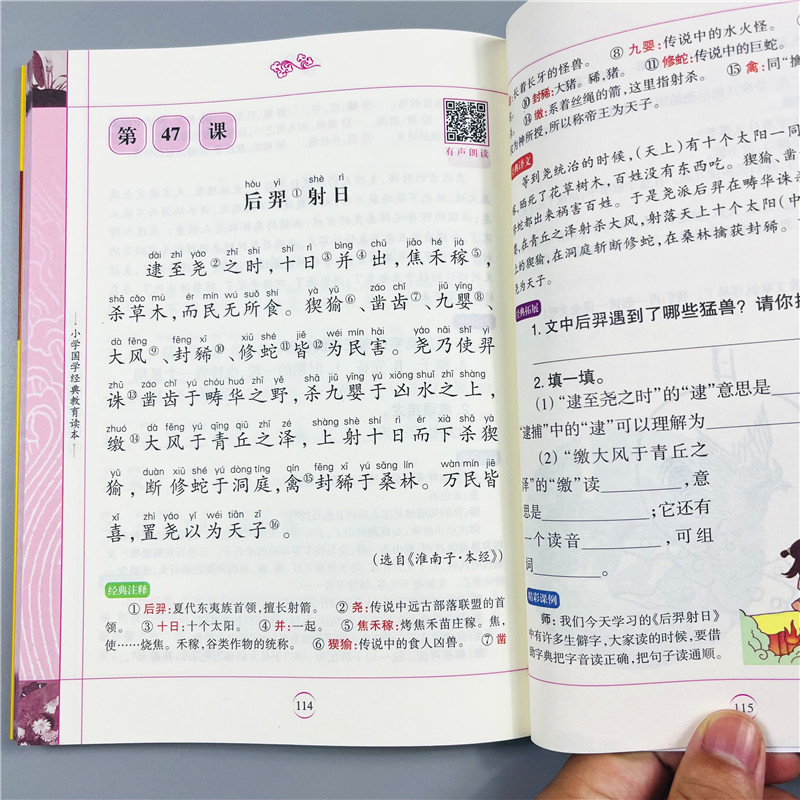 第47课
有声朗读
hòu yì shè rì
后羿①射日
dài zhì yáo zhī shí shí rì bìng chū jiāo hé jià
逮至尧②之时，十日③并④出，焦禾稼⑤，
shā cǎo mù ér mín wú suǒ shí yà yǔ záo chǐ jiǔ yīng
杀草木，而民无所食。猰㺄⑥、凿齿⑦、九婴⑧、
dà fēng fēng xī xiū shé jiē wéi mín hài yáo nǎi shǐ yì
大风⑨、封豨⑩、修蛇⑪皆⑫为民害。尧乃使羿
zhū záo chǐ yú chóu huá zhī yě shā jiǔ yīng yú xiōng shuǐ zhī shàng
诛⑬凿齿于畴华之野，杀九婴于凶水之上，
zhuó dà fēng yú qīng qiū zhī zé shàng shè shí rì ér xià shā yà
缴⑭大风于青丘之泽，上射十日而下杀猰
yǔ duàn xiū shé yú dòng tíng qín fēng xī yú sāng lín wàn mín jiē
㺄，断修蛇于洞庭，禽⑮封豨于桑林。万民皆
xǐ zhì yáo yǐ wéi tiān zǐ
喜，置尧以为天子⑯。
（选自《淮南子·本经》）
经典注释
①后羿：夏代东夷族首领，擅长射箭。 ②尧：传说中远古部落联盟的首
领。 ③十日：十个太阳。 ④并：一起。 ⑤焦禾稼：烤焦禾苗庄稼。焦，
使……烧焦。禾稼，谷类作物的统称。 ⑥猰㺄：传说中的食人凶兽。 ⑦凿
小学国学经典教育读本
114
⑧九婴：传说中的水火怪。
长着长牙的怪兽。
⑩封豨：大猪。豨，猪。 ⑪修蛇：传说中的巨蛇。
⑭缴：系着丝绳的箭，这里指射杀。 ⑮禽：同“擒
为神所授，所以称帝王为天子。
经典译文
等到尧统治的时候，（天上）有十个太阳一同
，晒死了花草树木，百姓没有东西吃。猰㺄、凿
蛇都出来祸害百姓。于是尧派后羿在畴华诛杀
，在青丘之泽射杀大风，射落天上十个太阳（中
上的猰㺄，在洞庭斩断修蛇，在桑林擒获封豨。
为天子。
经典拓展
1. 文中后羿遇到了哪些猛兽？请你
2. 填一填。
（1）“逮至尧之时”的“逮”意思是
“逮捕”中的“逮”可以理解为
（2）“缴大风于青丘之
泽”的“缴”读________，意
思是________；它还有
一个读音________，可组
词________
精彩课例
师：我们今天学习的《后羿射日》
中有许多生僻字，大家读的时候，要借
助字典把字音读正确，把句子读通顺。
115